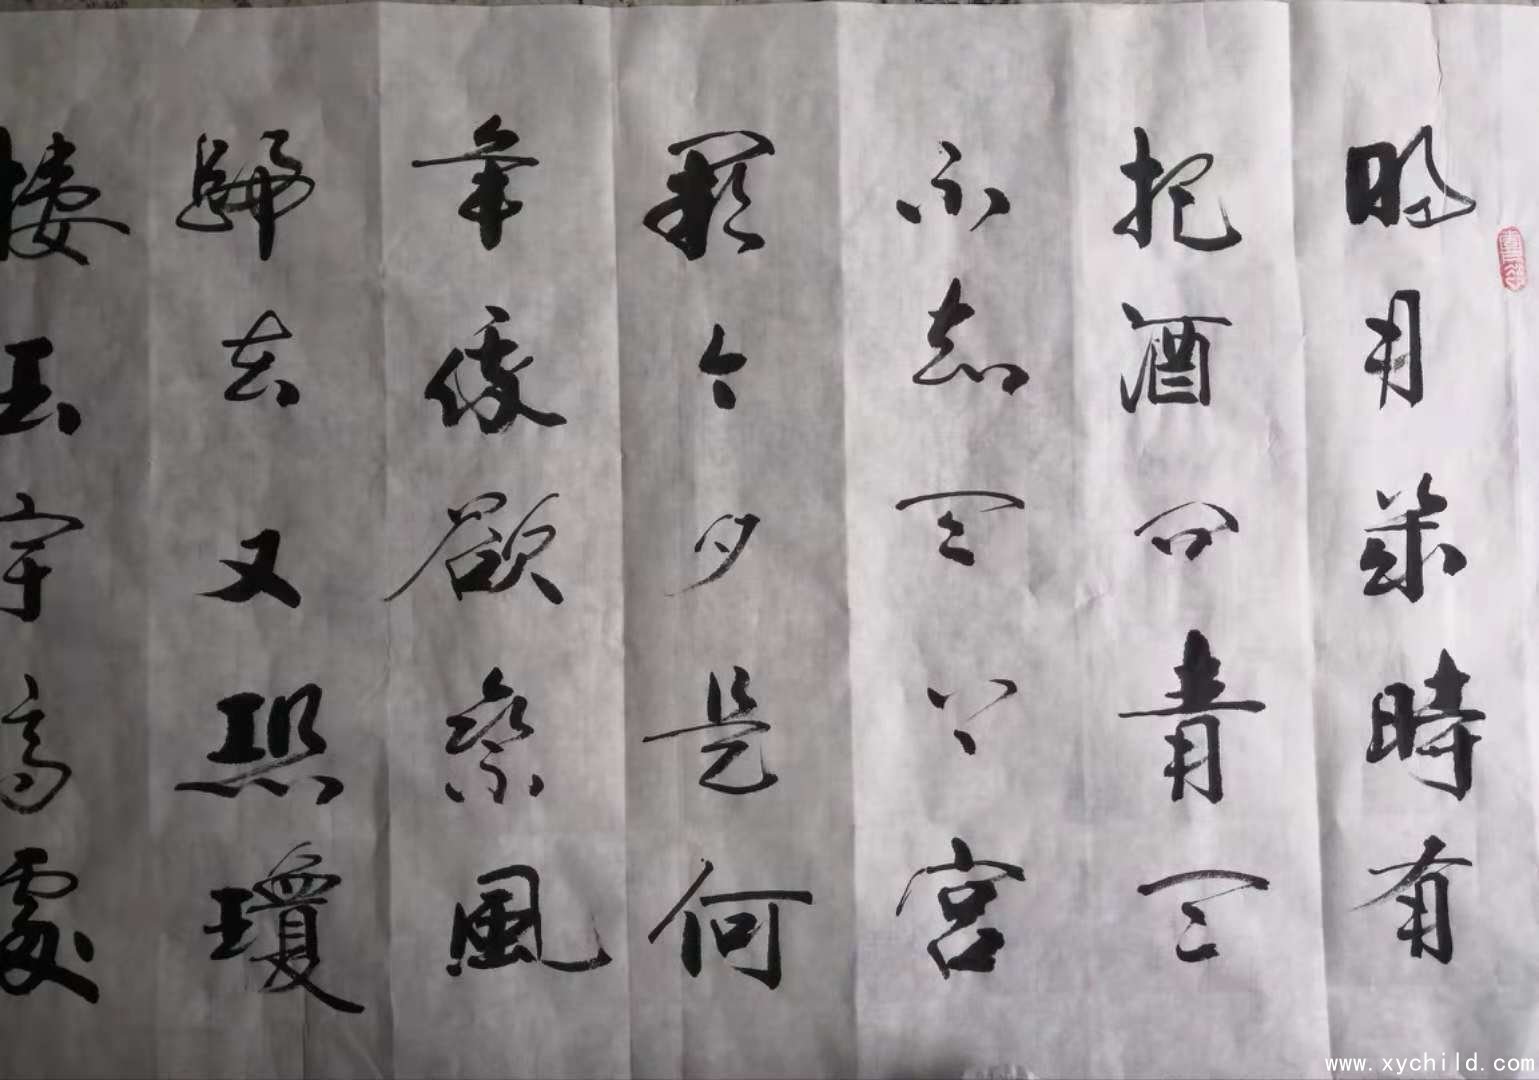 明月幾時有
把酒問青天
不知天上宮
闕今夕是何
年我欲乘風
歸去又恐瓊
樓玉宇高處
www.xychild.com